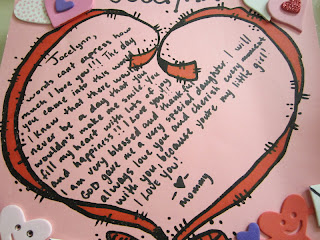 Jocelynn
Jocelynn,
I can't express how
much I love you!!! The day
you came into this world
I knew that there would
never be a day that you
wouldn't make me smile. You
fill my heart with lots of joy
and happiness!!! Love you!!
I am very blessed and thankful
God gave me a very special daughter. I will
always love you and cherish every
with you, because you're my little girl!
I Love you!
Mommy